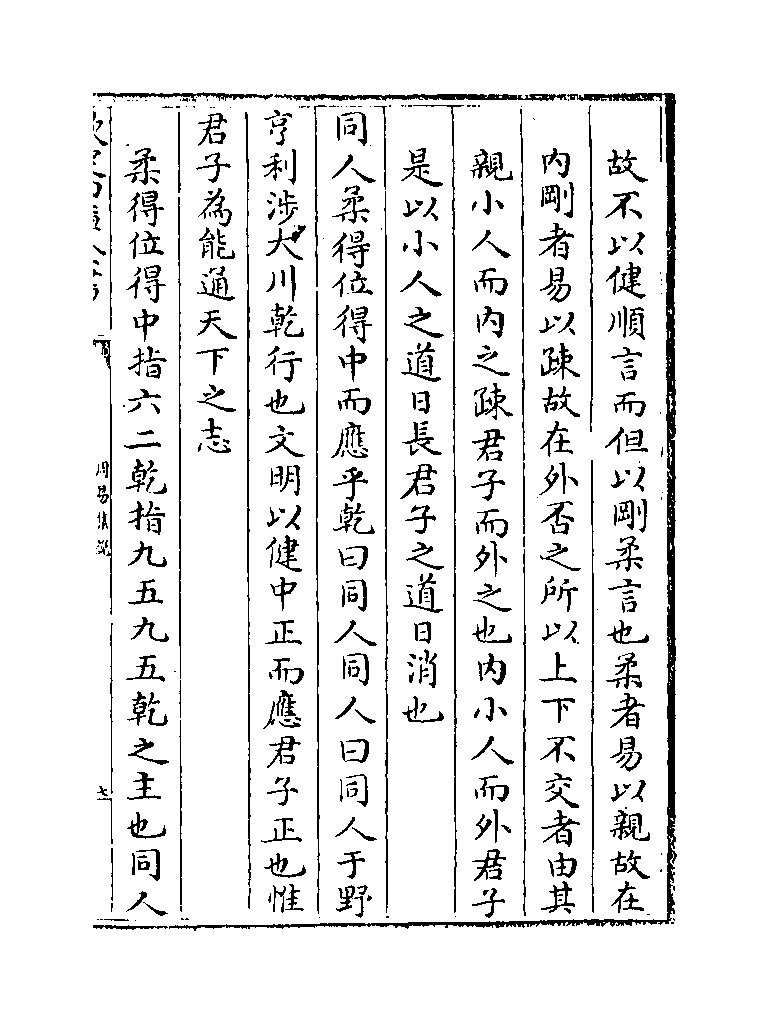 故不以健順言而但以剛柔言也柔者易以親故在
内剛者易以踈故在外否之所以上下不交者由其
親小人而内之踈君子而外之也内小人而外君子
是以小人之道日長君子之道日消也
同人柔得位得中而應乎乾曰同人同人曰同人于野
亨利涉大川乾行也文明以健中正而應君子正也惟
君子為能通天下之志
柔得位得中指六二乾指九五九五乾之主也同人
周易集說
七